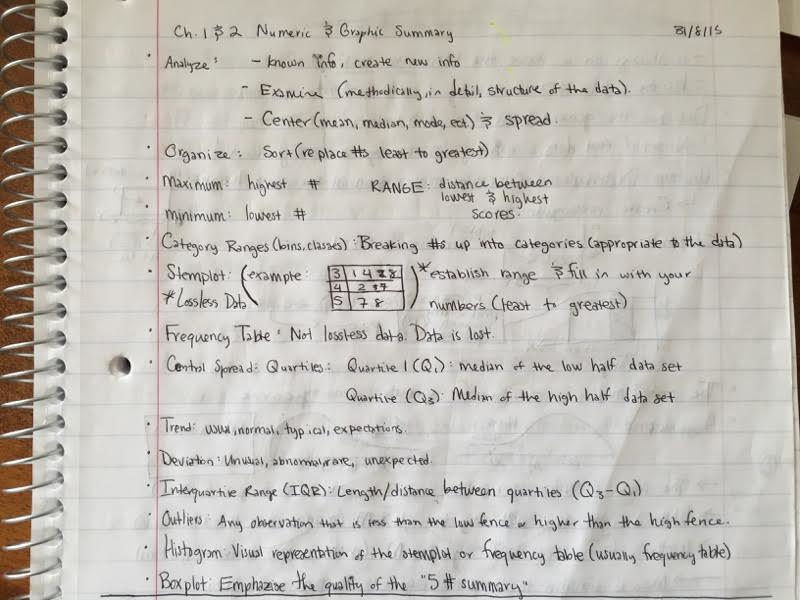 Ch. 1 & 2 Numeric & Graphic Summary 31/8/15
• Analyze: - known info, create new info
- Examine (methodically, in detail, structure of the data).
- Center (mean, median, mode, ect) & spread.
• Organize: Sort (replace #s least to greatest)
• Maximum: highest # RANGE: distance between
lowest & highest
• minimum: lowest # scores.
• Category Ranges (bins, classes): Breaking #s up into categories (appropriate to the data)
• Stemplot: (example: 3 | 1 4 8 8 ) *establish range & fill in with your
4 | 2 7
*Lossless Data 5 | 7 8 numbers (least to greatest)
• Frequency Table: Not lossless data. Data is lost.
• Central Spread: Quartiles: Quartile 1 (Q1): median of the low half data set
Quartile (Q3): Median of the high half data set
• Trend: usual, normal, typical, expectations.
• Deviation: Unusual, abnormal, rare, unexpected.
• Interquartile Range (IQR): Length/distance between quartiles (Q3-Q1)
• Outliers: Any observation that is less than the low fence or higher than the high fence.
• Histogram: Visual representation of the stemplot or frequency table (usually frequency table)
• Boxplot: Emphazise the quality of the "5 # summary"